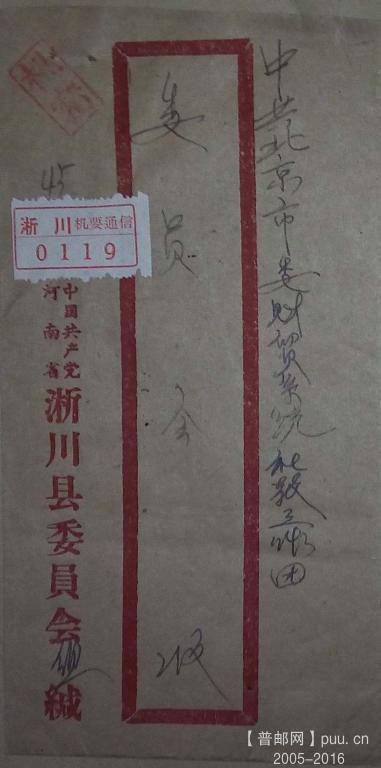 中共北京市委财贸系统社教工作团
委员会
收
机密
45
淅川 机要通信
0119
中国共产党
河南省
淅川县委員会 缄
【普邮网】puu.cn
2005-2016